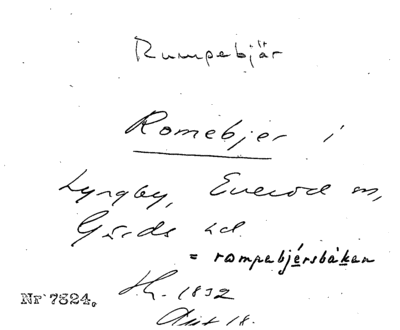 Rumpebjär
Romebjer i
Lyngby, Everöd sn,
Gärds hd.
= rompebjérsbákan
Nr 7324.
1832